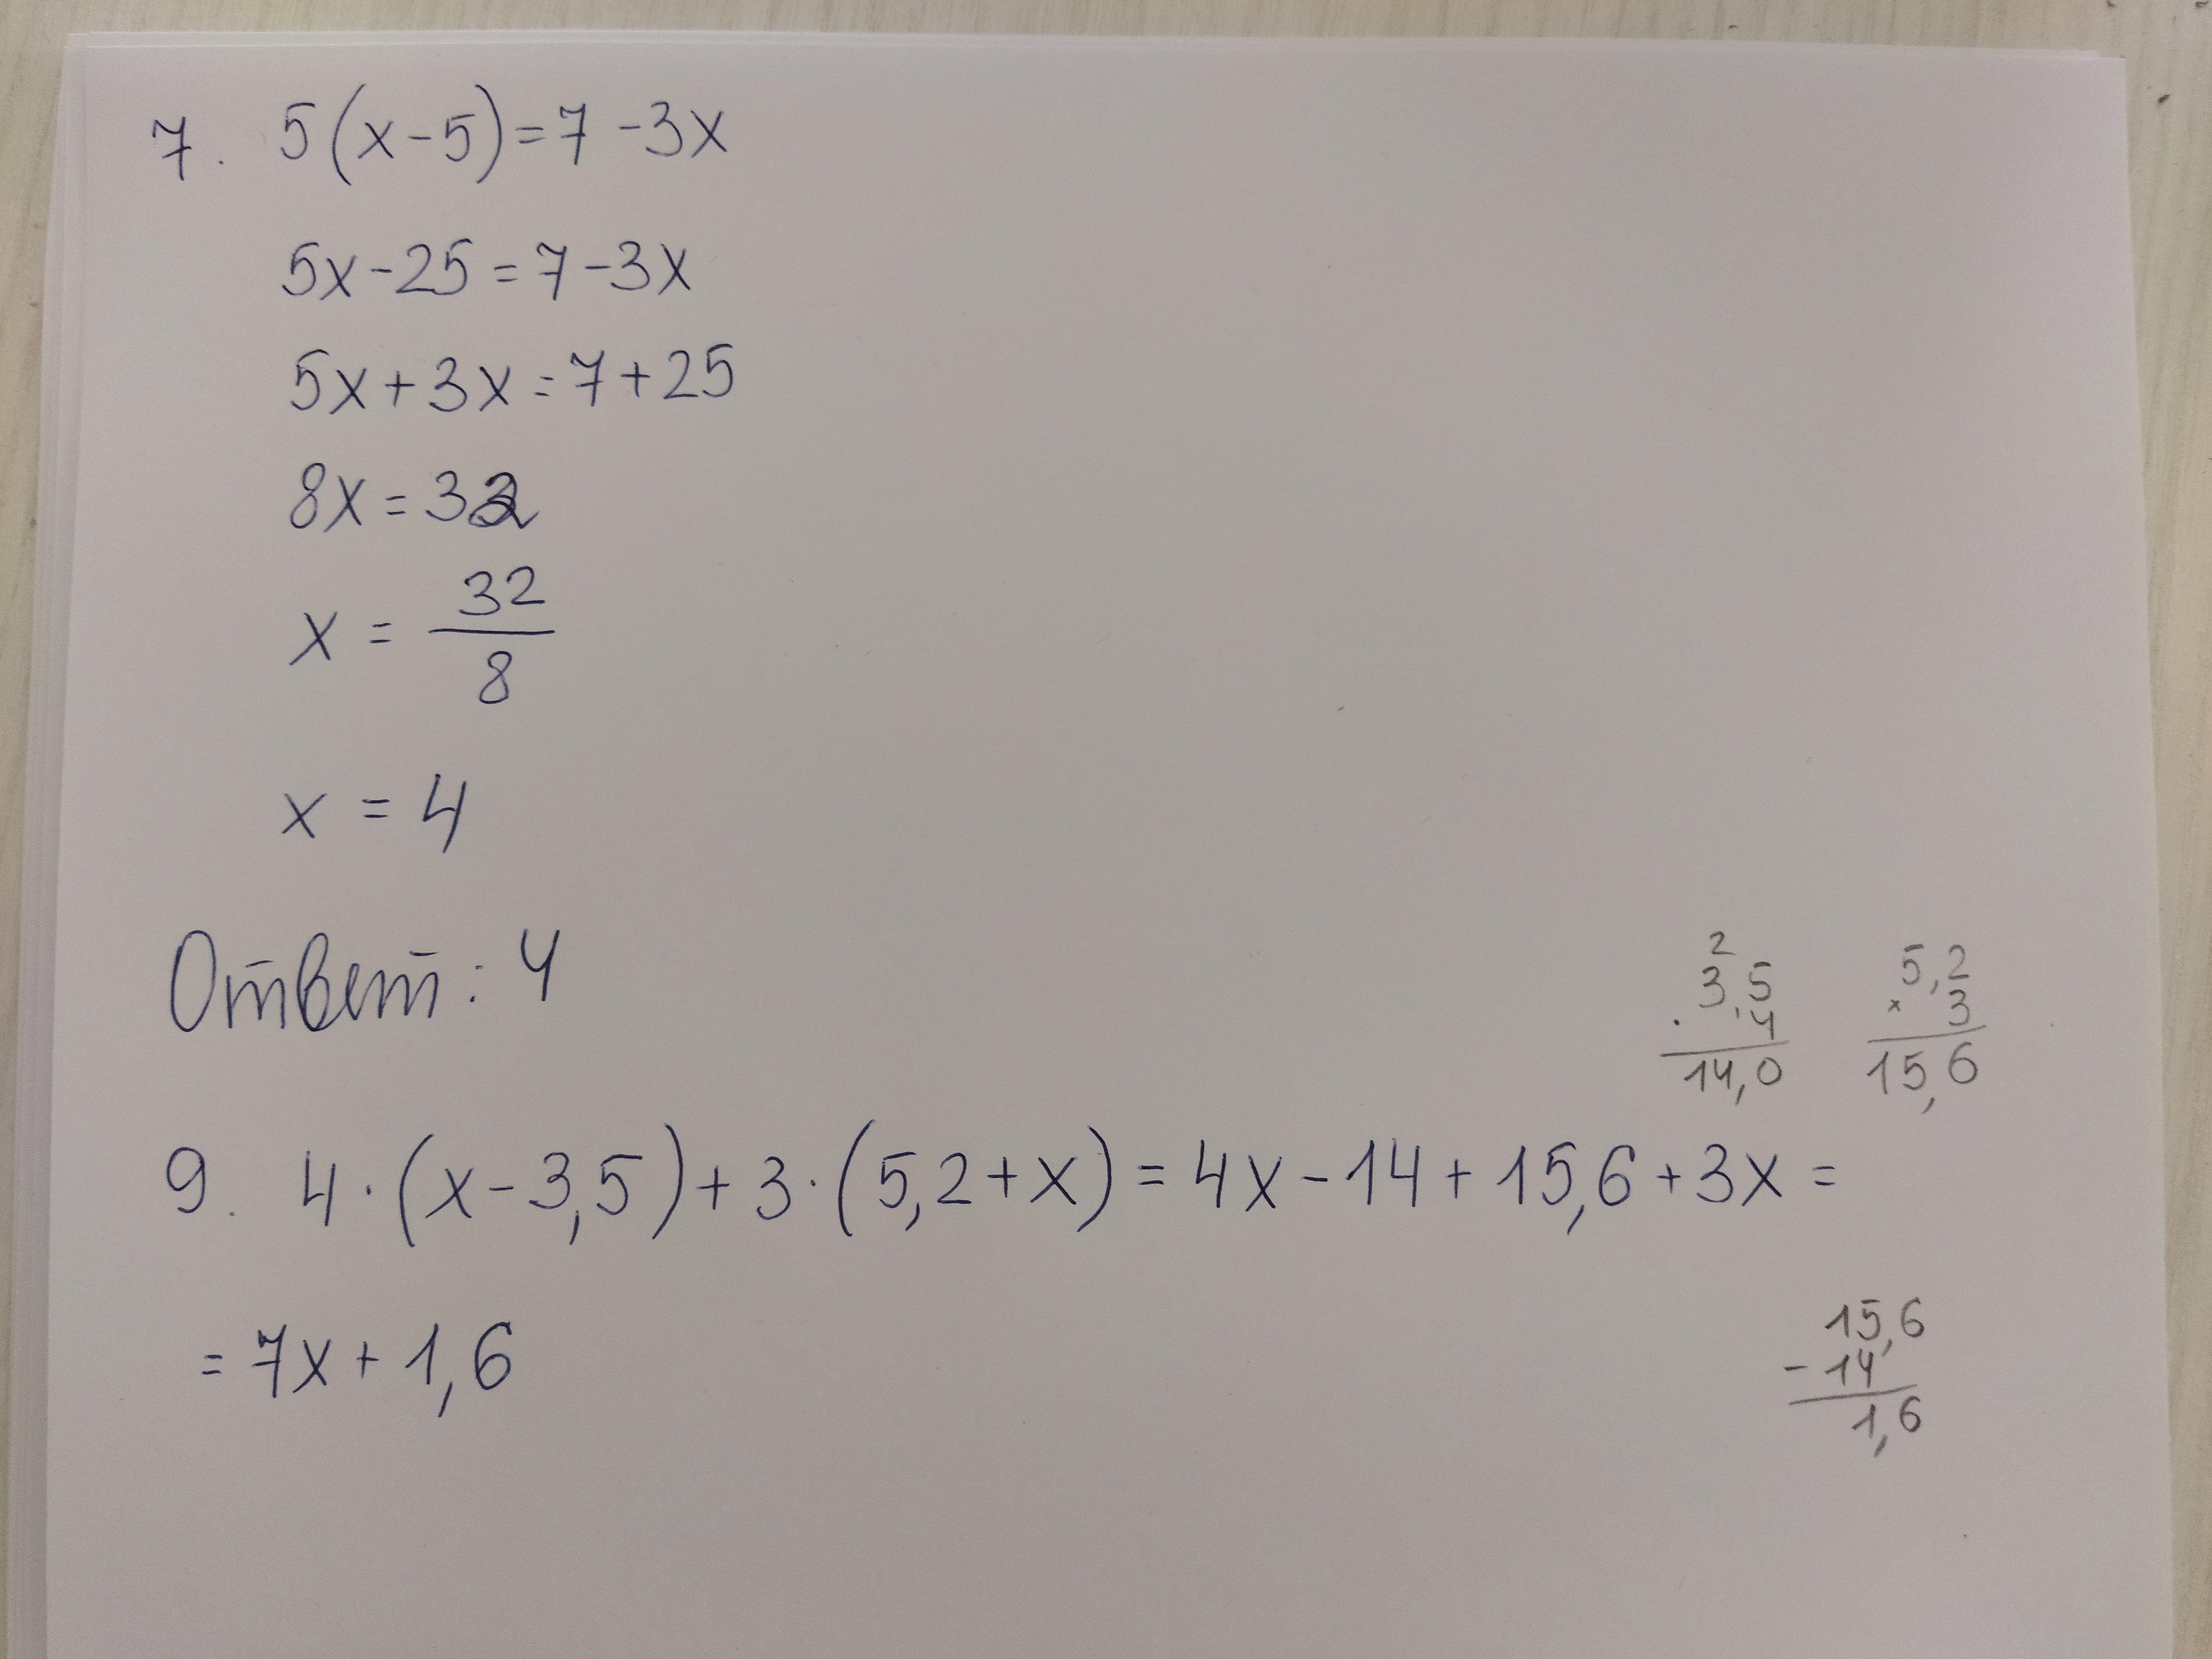 7. 5(x-5)=7-3x
5x-25=7-3x
5x+3x=7+25
8x=32
x = 32/8
x = 4
Ответ: 4
2
3,5
· 4
14,0
5,2
× 3
15,6
9. 4·(x-3,5)+3·(5,2+x)=4x-14+15,6+3x=
=7x+1,6
15,6
-14
1,6